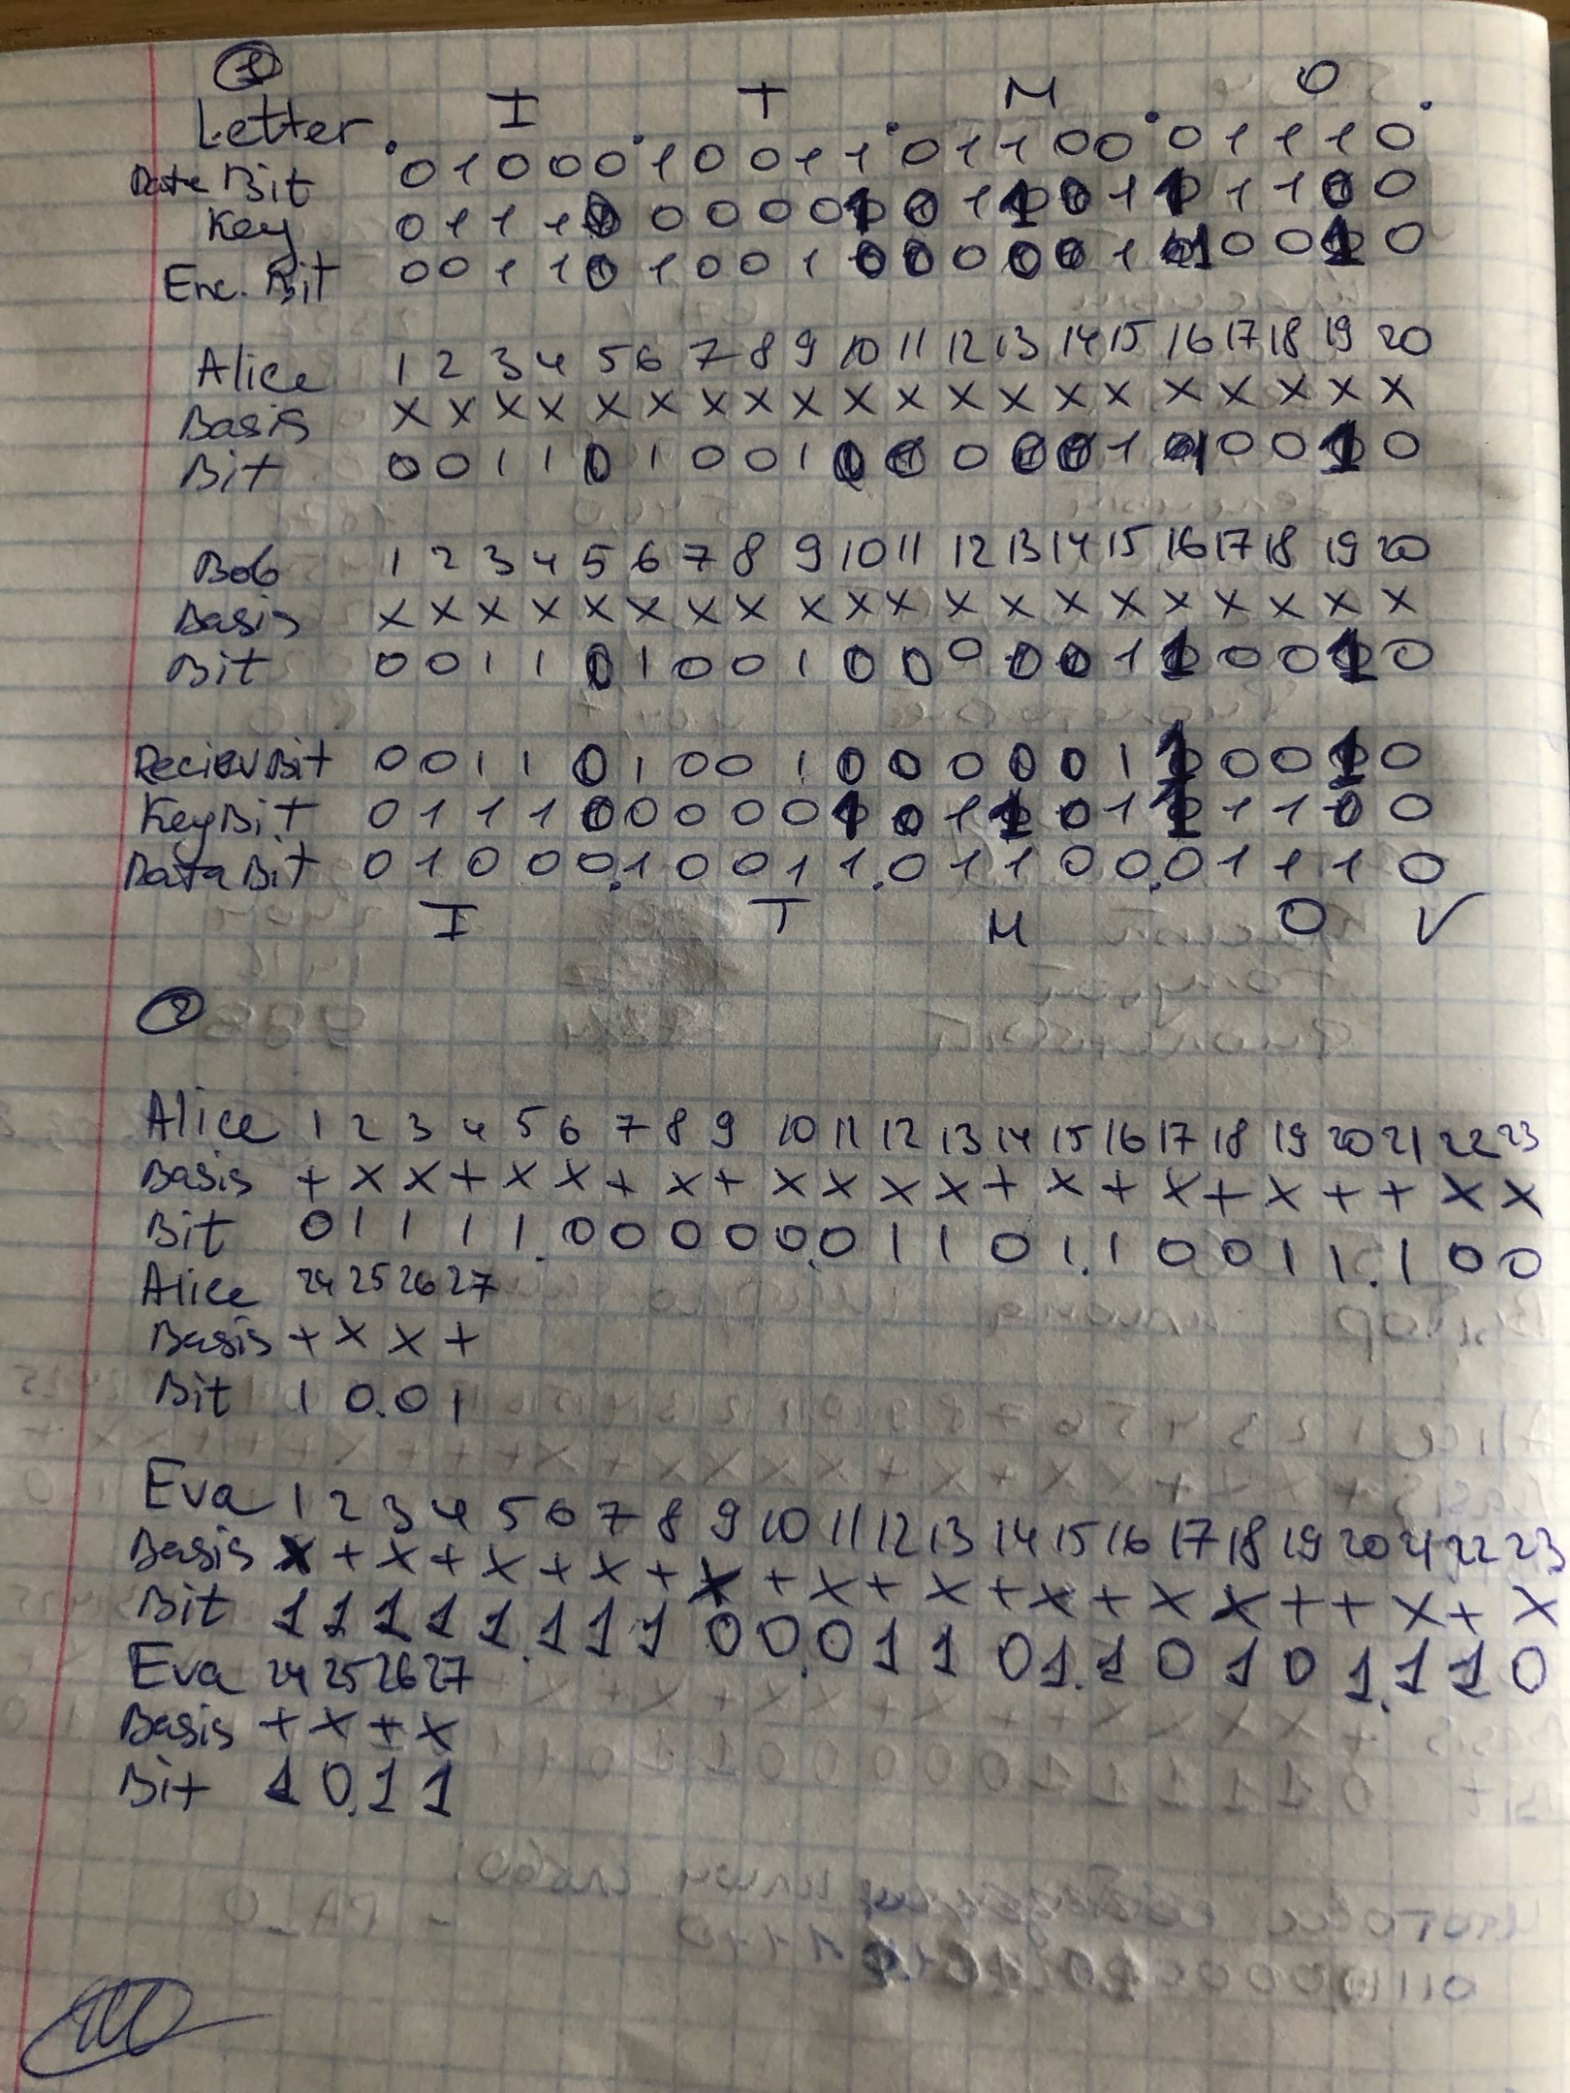 1
I T M O
Letter
Data Bit 0 1 0 0 0 1 0 0 1 1 0 1 1 0 0 0 1 1 1 0
Key 0 1 1 1 0 0 0 0 0 1 0 1 1 0 1 1 1 1 0 0
Enc. Bit 0 0 1 1 0 1 0 0 1 0 0 0 0 0 1 1 0 0 1 0
Alice 1 2 3 4 5 6 7 8 9 10 11 12 13 14 15 16 17 18 19 20
Basis x x x x x x x x x x x x x x x x x x x x
Bit 0 0 1 1 0 1 0 0 1 0 0 0 0 0 1 1 0 0 1 0
Bob 1 2 3 4 5 6 7 8 9 10 11 12 13 14 15 16 17 18 19 20
Basis x x x x x x x x x x x x x x x x x x x x
Bit 0 0 1 1 0 1 0 0 1 0 0 0 0 0 1 1 0 0 1 0
Reciev Bit 0 0 1 1 0 1 0 0 1 0 0 0 0 0 1 1 0 0 1 0
Key Bit 0 1 1 1 0 0 0 0 0 1 0 1 1 0 1 1 1 1 0 0
Data Bit 0 1 0 0 0.1 0 0 1 1.0 1 1 0 0.0 1 1 1 0
I T M O √
2
Alice 1 2 3 4 5 6 7 8 9 10 11 12 13 14 15 16 17 18 19 20 21 22 23
Basis + x x + x x + x + x x x x + x + x + x + + x x
Bit 0 1 1 1 1.0 0 0 0 0.0 1 1 0 1.1 0 0 1 1.1 0 0
Alice 24 25 26 27
Basis + x x +
Bit 1 0.0 1
Eva 1 2 3 4 5 6 7 8 9 10 11 12 13 14 15 16 17 18 19 20 21 22 23
Basis x + x + x + x + x + x + x + x + x x + + x + x
Bit 1 1 1 1 1.1 1 1 0 0.0 1 1 0 1.1 0 1 0 1.1 1 0
Eva 24 25 26 27
Basis + x + x
Bit 1 0.1 1